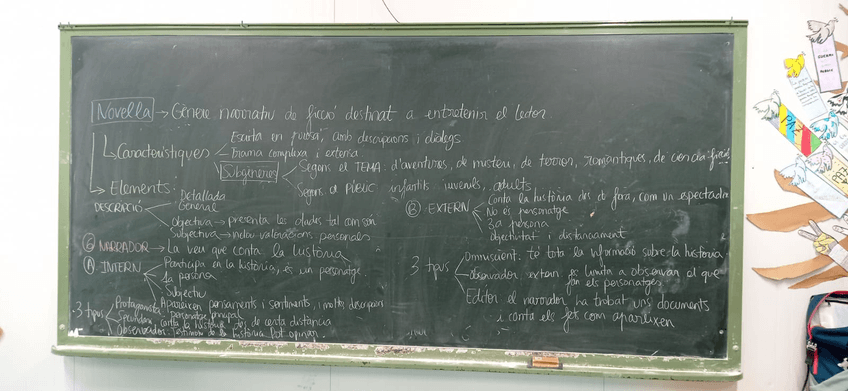 Novel·la → Gènere narratiu de ficció destinat a entretenir el lector.
Característiques
Escrita en prosa, amb descripcions i diàlegs
Trama complexa i extensa
Subgèneres
Segons el TEMA: d'aventures, de misteri, de terror, romàntiques, de ciència ficció
Segons el PÚBLIC: infantils, juvenils, adults
Elements:
DESCRIPCIÓ
Detallada
General
objectiva → presenta les dades tal com són
subjectiva → inclou valoracions personals
NARRADOR → La veu que conta la història
A INTERN
Participa en la història, és un personatge.
1a persona
Subjectiu
Apareixen pensaments i sentiments, i moltes descripcions
3 tipus
Protagonista: personatge principal
Secundari: conta la història des de certa distància
Observador: Testimoni de la història. Pot opinar.
B EXTERN
Conta la història des de fora, com un espectador
No és personatge
3a persona
objectivitat i distanciament
3 tipus
omniscient: té tota la informació sobre la història
observador extern es limita a observar el que fan els personatges
Editor el narrador ha trobat uns documents
i conta els fet com apareixen
PAZ